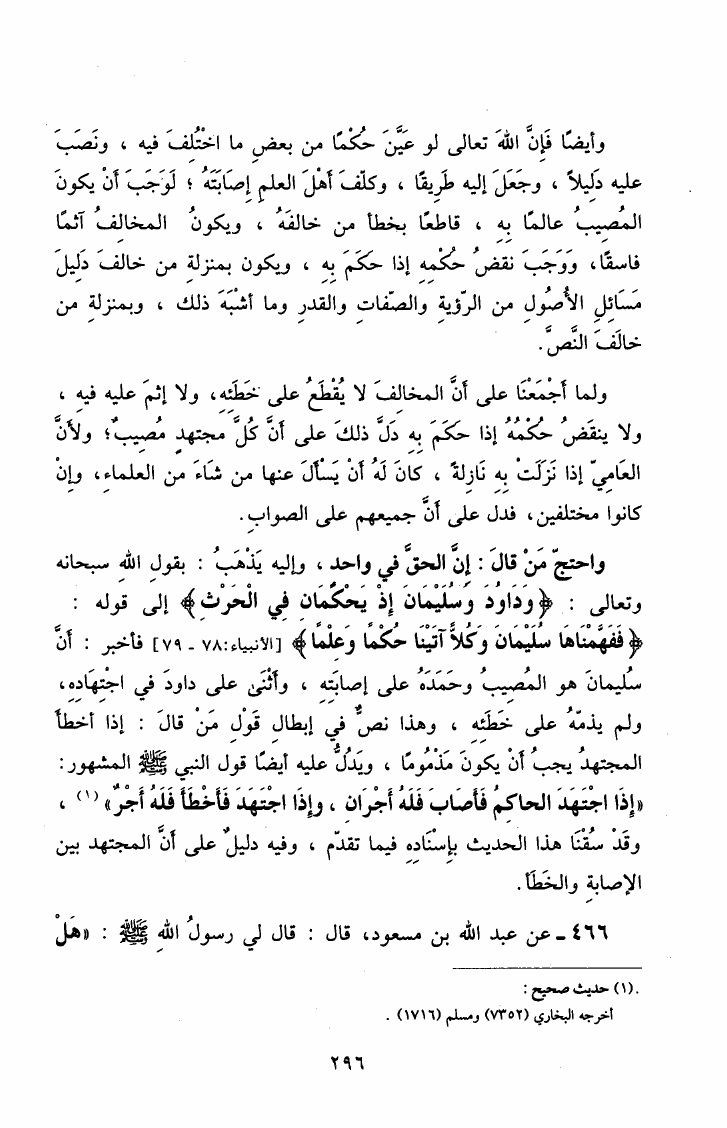 وأيضًا فَإِنَّ اللهَ تعالى لو عَيَّنَ حُكْمًا من بعضِ ما اخْتُلِفَ فيه ، ونَصَبَ
عليه دَلِيلاً ، وجَعَلَ إليه طَرِيقًا ، وكلّفَ أهْلَ العلمِ إصَابَتَهُ ؛ لَوَجَبَ أنْ يكونَ
المُصِيبُ عالمًا بِهِ ، قاطعًا بخطأ من خالفَهُ ، ويكونُ المخالِفُ آثمًا
فاسقًا، وَوَجَبَ نقضُ حُكْمِهِ إذا حَكَمَ بِهِ ، ويكون بمنزلةِ من خالفَ دَلِيلَ
مَسَائلِ الأُصُولِ من الرّؤيةِ والصّفاتِ والقدرِ وما أشْبَهَ ذلك ، وبمنزلةِ من
خالَفَ النَّصَّ.
ولما أجْمَعْنَا على أنَّ المخالفَ لا يُقْطَعُ على خَطَئِهِ، ولا إثمَ عليه فيهِ ،
ولا ينقَضُ حُكْمُهُ إذا حكَمَ بِهِ دَلَّ ذلكَ على أنَّ كُلَّ مجتهدٍ مُصِيبٌ؛ ولأنَّ
العَامِيّ إذا نَزَلَتْ بِهِ نَازِلةً ، كانَ لَهُ أنْ يَسْأَلَ عنها من شَاءَ من العلماءِ، وإنْ
كانوا مختلفين، فدل على أنَّ جميعهم على الصوابِ.
واحتجّ مَنْ قالَ : إنَّ الحقَّ في واحد ، وإليه يَذْهَبُ : بقولِ اللهِ سبحانه
وتعالى : ﴿وَدَاوُدَ وَسُلَيْمَانَ إِذْ يَحْكُمَانِ فِي الْحَرْثِ﴾ إلى قوله :
﴿فَفَهَّمْنَاهَا سُلَيْمَانَ وَكُلاًّ آتَيْنَا حُكْمًا وَعِلْمًا﴾ [الأنبياء:٧٨ ـ ٧٩] فأخبر : أنَّ
سُليمانَ هو المُصِيبُ وحَمَدَهُ على إصابَتِهِ ، وأثْنَىٰ على داودَ في اجتهادِهِ،
ولم يذمّهُ على خَطَئِهِ ، وهذا نصٌّ في إبطالِ قوْلِ مَنْ قالَ : إذا أخطأ
المجتهدُ يجبُ أنْ يكونَ مَذْمُومًا ، ويَدُلُّ عليه أيضًا قول النبي ﷺ المشهور:
«إِذَا اجْتَهَدَ الحاكمُ فَأَصَابَ فَلَهُ أَجْرَانِ ، وإِذَا اجْتَهَدَ فَأَخْطَأَ فَلَهُ أَجْرٌ» (١) ،
وقَدْ سُقْنَا هذا الحديثَ بإسْنَادِهِ فيما تقدّم ، وفيه دليلٌ على أنَّ المجتهد بين
الإصابةِ والخَطَأ.
٤٦٦ ـ عن عبد الله بن مسعود، قال : قال لي رسولُ اللهِ ﷺ : «هَلْ
(١) حديث صحيح :
أخرجه البخاري (٧٣٥٢) ومسلم (١٧١٦) .
٢٩٦